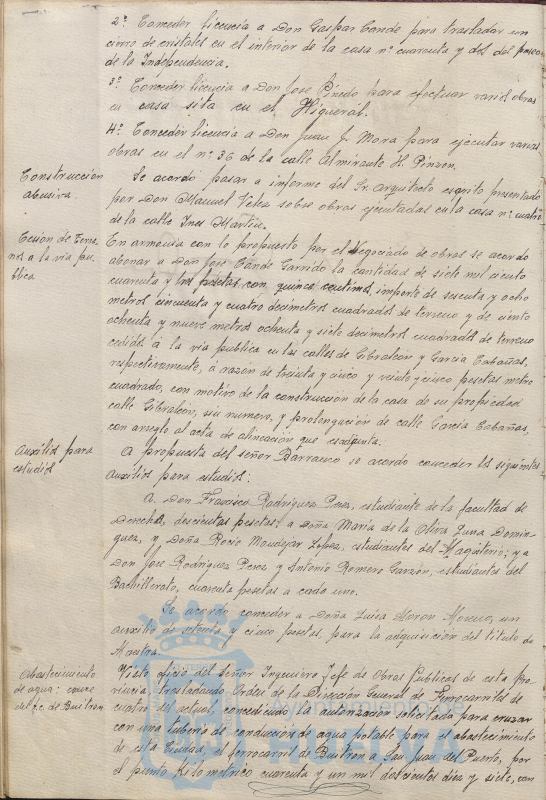 2º. Conceder licencia a Don Gaspar Conde para trasladar un
cierro de cristales en el interior de la casa nº cuarenta y dos del paseo
de la Independencia.
3º. Conceder licencia a Don Jose Pinedo para efectuar varias obras
en casa sita en el Higueral.
4º. Conceder licencia a Don Juan J. Mora para ejecutar varias
obras en el nº 36 de la calle Almirante H. Pinzon.
Construcción
abusiva.
Se acordó pasar a informe del Sr. Arquitecto escrito presentado
por Don Manuel Velez sobre obras ejecutadas en la casa nº cuatro
de la calle Ines Martin.
Cesion de terre
nos a la vía pú-
blica
En armonia con lo propuesto por el Negociado de obras se acordo
abonar a Don Jose Conde Garrido la cantidad de siete mil ciento
cuarenta y tres pesetas con quince centimos, importe de sesenta y ocho
metros cincuenta y cuatro decimetros cuadrados de terreno y de ciento
ochenta y nueve metros ochenta y siete decimetros cuadrados de terreno
cedidos á la vía publica en las calles de Gibraleon y Garcia Cabañas,
respectivamente, á razón de treinta y cinco y veinte y cinco pesetas metro
cuadrado, con motivo de la construcción de la casa de su propiedad
calle Gibraleón, sin numero, y prolongación de calle Garcia Cabañas,
con arreglo al acta de alineación que es adjunta.
Auxilios para
estudios
A propuesta del señor Barranco se acordo conceder los siguientes
auxilios para estudios:
A Don Francisco Rodriguez Perez, estudiante de la facultad de
Derecho, doscientas pesetas; a Doña María de la Oliva Luna Domin-
guez, y Doña Rocio Mondejar Lopez, estudiantes del Magisterio; y a
Don Jose Rodriguez Perez y Antonio Romero Garzón, estudiantes del
Bachillerato, cuarenta pesetas a cada uno.
Se acordo conceder a Doña Luisa Moron Moreno, un
auxilio de setenta y cinco pesetas, para la adquisición del titulo de
Maestra.
Abastecimiento
de agua: cruce
del f.c. de Buitron
Visto oficio del Señor Ingeniero Jefe de Obras Publicas de esta pro-
vincia, trasladando Orden de la Dirección General de Ferrocarriles de
cuatro del actual, concediendo la autorización solicitada para cruzar
con una tuberia de conducción de agua potable para el abastecimiento
de esta Ciudad, el ferrocarril de Buitron a San Juan del Puerto, por
el punto kilometrico cuarenta y un mil doscientos diez y siete, con
Ayuntamiento de
HUELVA